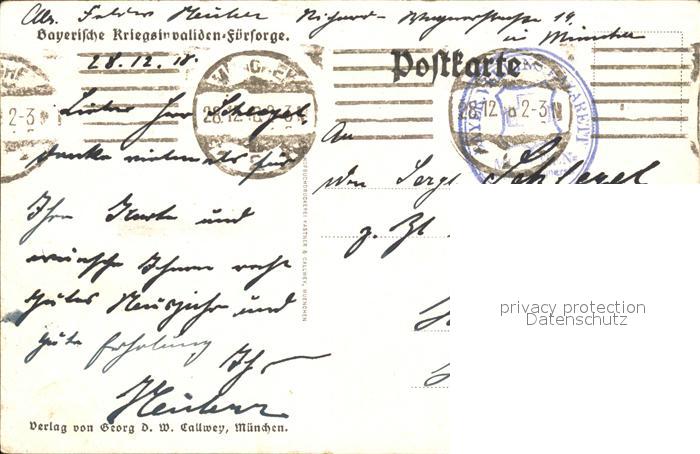 Abs. Felder Richard-Wagnerstrasse 19.
in München
Bayerische Kriegsinvaliden-Fürsorge.
28.12.18.
Postkarte
28.12 8 2-3
28.12 8 2-3
2-3
LAZARETT
Lieber Herr Schegel
danke vielmals für
Ihre Karte und
wünsche Ihnen recht
gutes Neujahr und
gute Erholung
Ihr
An
den Serg. Schegel
z. Zt.
BUCHDRUCKEREI KASTNER & CALLWEY, MÜNCHEN
Verlag von Georg D. W. Callwey, München.
privacy protection
Datenschutz